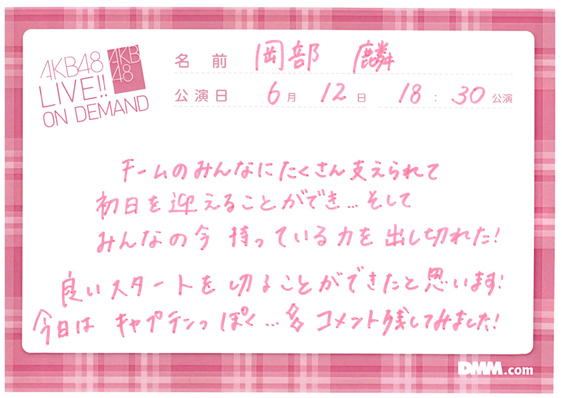 AKB48
LIVE!!
ON DEMAND
AKB
48
名 前 岡部 麟
公演日 6月 12日 18:30公演
チームのみんなにたくさん支えられて
初日を迎えることができ...そして
みんなの今 持っている力を出し切れた!
良いスタートを切ることができたと思います!
今日は キャプテンっぽく... コメント残してみました!
DMM.com